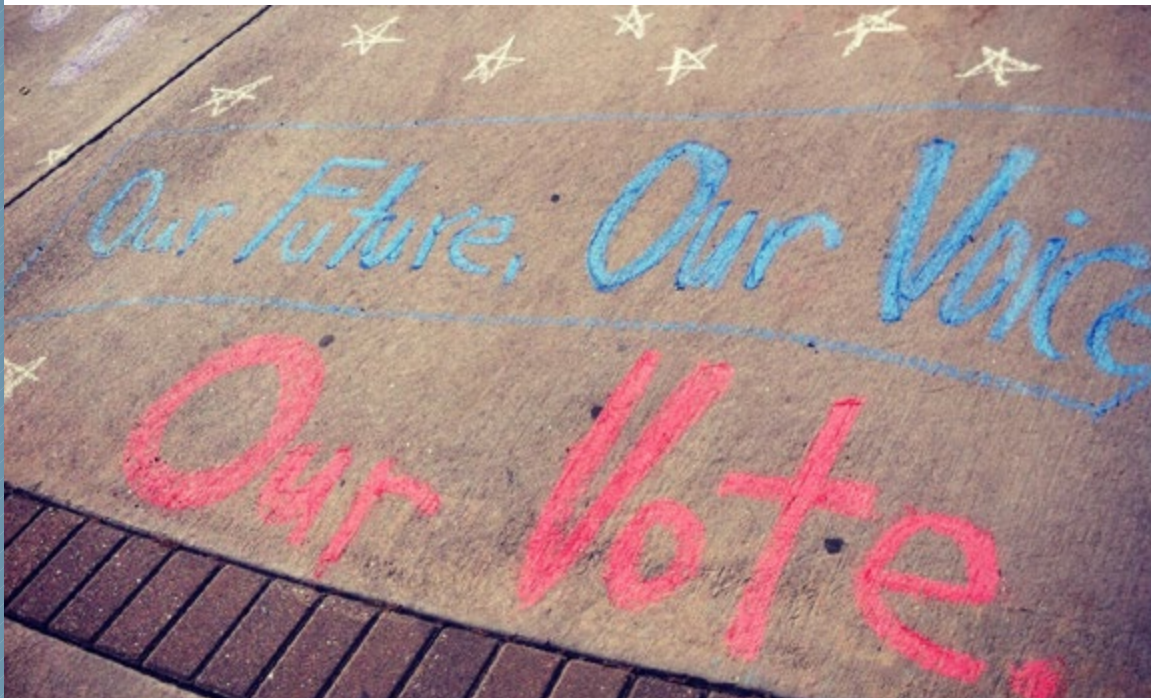 Our Future, Our Voice
Our Vote.